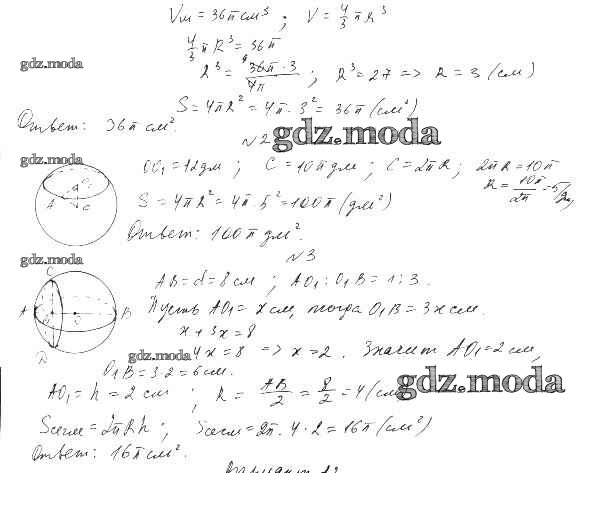 Vш = 36π см³ ; V = 4/3 πR³
4/3 πR³ = 36π
gdz.moda
R³ = 36π·3/4π ; R³ = 27 => R = 3 (см)
S = 4πR² = 4π·3² = 36π (см²)
Ответ: 36π см².
№2 gdz.moda
gdz.moda
OO₁ = 12 дм ; C = 10π дм ; C = 2πR ; 2πR = 10π
R = 10π/2π = 5 (дм)
S = 4πR² = 4π·5² = 100π (дм²)
Ответ: 100π дм².
№3
gdz.moda
AB = d = 8 см ; AO₁ : O₁B = 1 : 3.
Пусть AO₁ = x см, тогда O₁B = 3x см.
x + 3x = 8
gdz.moda 4x = 8 => x = 2. Значит AO₁ = 2 см,
O₁B = 3·2 = 6 см.
AO₁ = h = 2 см ; R = AB/2 = 8/2 = 4 (см) gdz.moda
Sсегм = 2πRh ; Sсегм = 2π·4·2 = 16π (см²)
Ответ: 16π см².